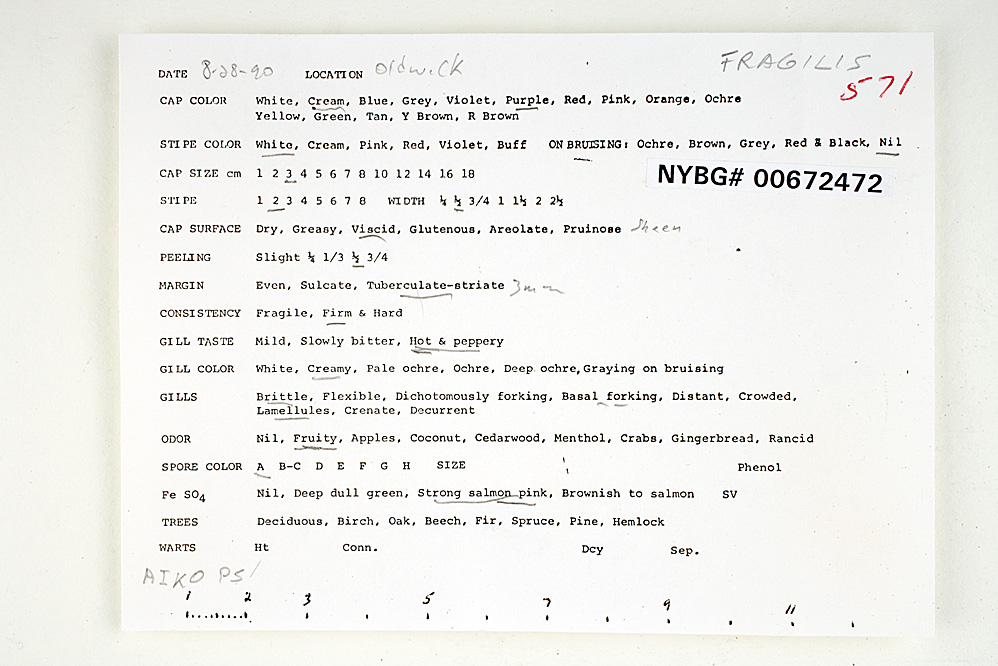 FRAGILIS
DATE 8-28-90 LOCATION Oldwick
571
CAP COLOR White, Cream, Blue, Grey, Violet, Purple, Red, Pink, Orange, Ochre
Yellow, Green, Tan, Y Brown, R Brown
STIPE COLOR White, Cream, Pink, Red, Violet, Buff ON BRUISING: Ochre, Brown, Grey, Red & Black, Nil
CAP SIZE cm 1 2 3 4 5 6 7 8 10 12 14 16 18
NYBG# 00672472
STIPE 1 2 3 4 5 6 7 8 WIDTH ¼ ½ 3/4 1 1½ 2 2½
CAP SURFACE Dry, Greasy, Viscid, Glutenous, Areolate, Pruinose Sheen
PEELING Slight ¼ 1/3 ½ 3/4
MARGIN Even, Sulcate, Tuberculate-striate 3mm
CONSISTENCY Fragile, Firm & Hard
GILL TASTE Mild, Slowly bitter, Hot & peppery
GILL COLOR White, Creamy, Pale ochre, Ochre, Deep ochre, Graying on bruising
GILLS Brittle, Flexible, Dichotomously forking, Basal forking, Distant, Crowded,
Lamellules, Crenate, Decurrent
ODOR Nil, Fruity, Apples, Coconut, Cedarwood, Menthol, Crabs, Gingerbread, Rancid
SPORE COLOR A B-C D E F G H SIZE Phenol
Fe SO4 Nil, Deep dull green, Strong salmon pink, Brownish to salmon SV
TREES Deciduous, Birch, Oak, Beech, Fir, Spruce, Pine, Hemlock
WARTS Ht Conn. Dcy Sep.
AIKO PS
1 2 3 5 7 9 11